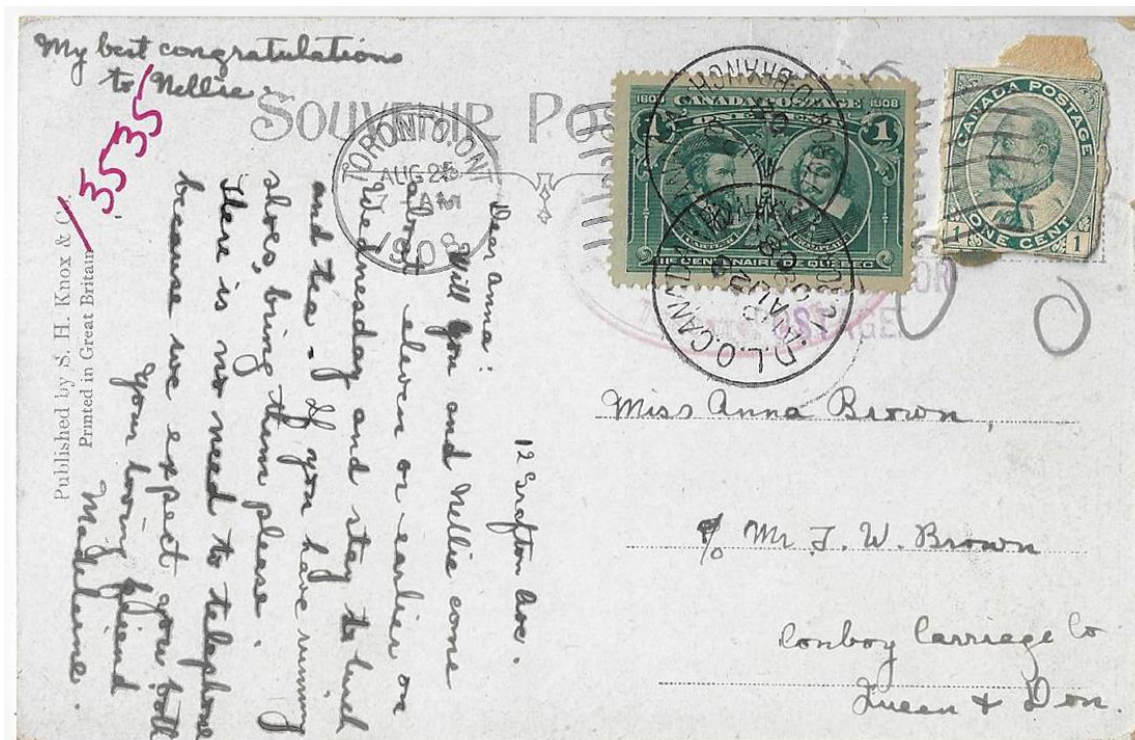 My best congratulations
to Nellie.
SOUVENIR POS
TORONTO, ONT
AUG 25
AM
1908
1608 CANADA POSTAGE 1908
1 1
IIIe CENTENAIRE DE QUÉBEC
CANADA POSTAGE
1 ONE CENT 1
D.L.O. CANADA
BRANCH
FOR
POSTAGE
3535
Published by S. H. Knox & Co.
Printed in Great Britain
12 Grafton Ave.
Dear Anna:
Will you and Nellie come
about eleven or earlier on
Wednesday and stay to lunch
and tea - If you have running
shoes, bring them please.
There is no need to telephone
because we expect you both
Your loving friend
Madeleine.
Miss Anna Brown,
c/o Mr. F. W. Brown
Conboy Carriage Co
Queen & Don.